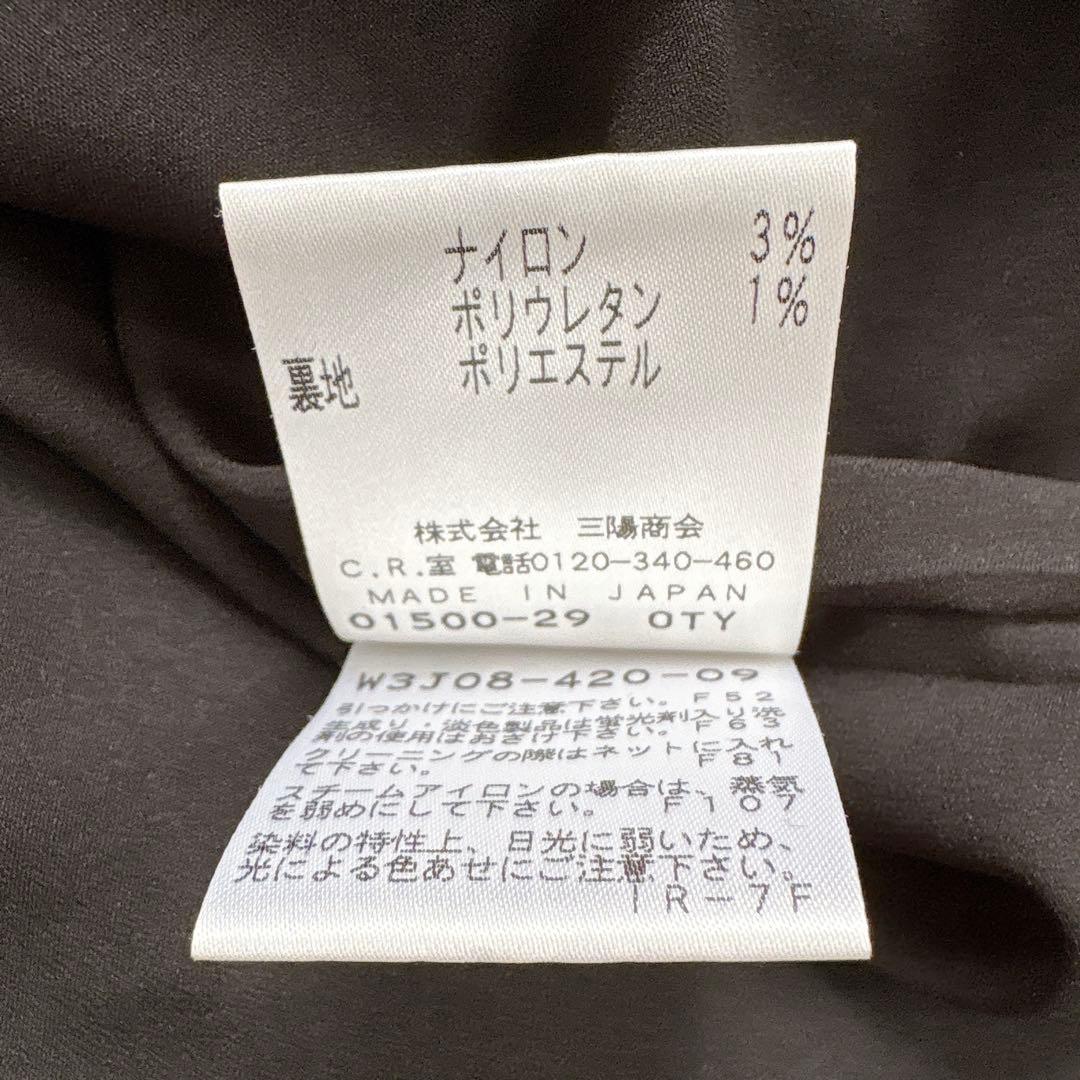 ナイロン 3%
ポリウレタン 1%
裏地 ポリエステル
株式会社 三陽商会
C.R.室 電話0120-340-460
MADE IN JAPAN
01500-29 0TY
W3J08-420-09
引っかけにご注意下さい。F52
生成り・淡色製品は蛍光剤入り洗
剤の使用はおさけ下さい。F63
クリーニングの際はネットに入れ
て下さい。F81
スチームアイロンの場合は、蒸気
を弱めにして下さい。F107
染料の特性上、日光に弱いため、
光による色あせにご注意下さい。
IR-7F